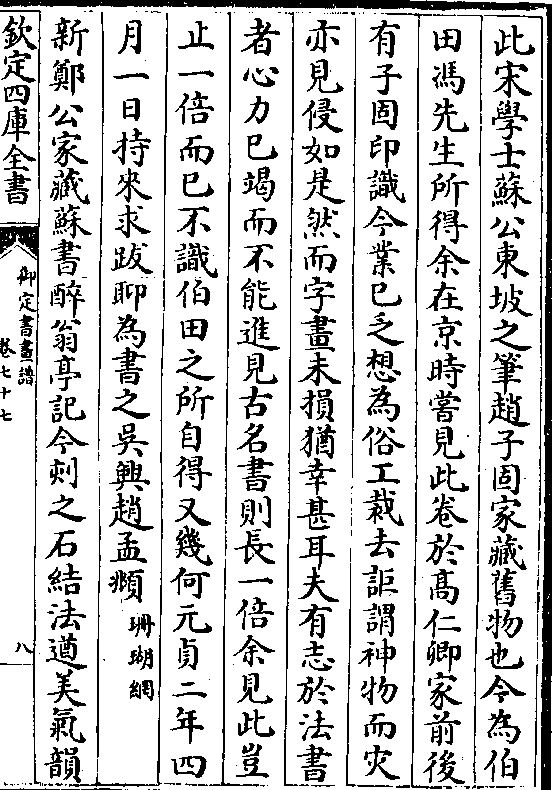 此宋學士蘇公東坡之筆趙子固家藏舊物也今為伯
田馮先生所得余在京時嘗見此卷於髙仁卿家前後
有子固印識今業已乏想為俗工裁去詎謂神物而灾
亦見侵如是然而字畫未損猶幸甚耳夫有志於法書
者心力已竭而不能進見古名書則長一倍余見此豈
止一倍而已不識伯田之所自得又幾何元貞二年四
月一日持來求跋聊為書之吳興趙孟頫 珊瑚網
新鄭公家藏蘇書醉翁亭記今刻之石結法遒美氣韻
欽定四庫全書
御定書畫譜
卷七十七
八